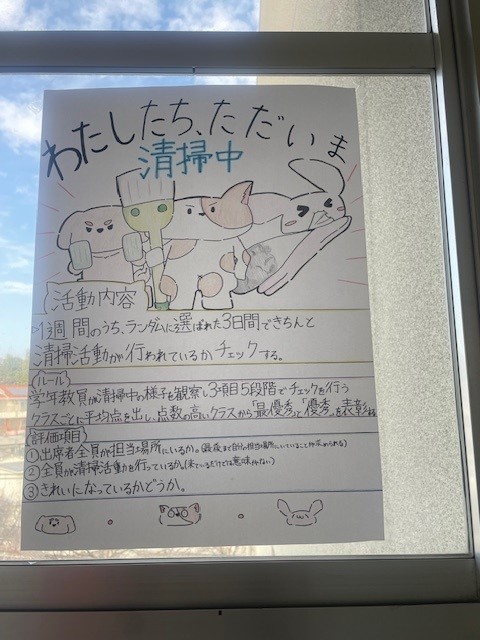 わたしたち、ただいま
清掃中
活動内容
1週間のうち、ランダムに選ばれた3日間できちんと
清掃活動が行われているかチェックする。
ルール
学年教員が清掃中の様子を観察し3項目5段階でチェックを行う
クラスごとに平均点を出し、点数の高いクラスから「最優秀」と「優秀」を表彰する
評価項目
①出席者全員が担当場所にいるか。(最後まで自分の担当場所にいていることが求められる)
②全員が清掃活動を行っているか。(来ているだけでは意味がない)
③きれいになっているかどうか。